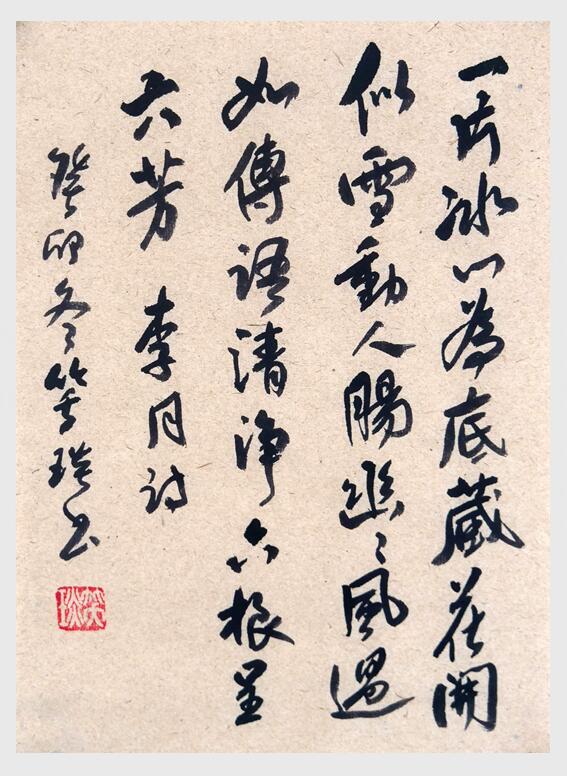 一片冰心為底藏花開
似雪動人腸幽々風過
如傳語清淨六根呈
六芳 李月詩
癸卯冬笑琰书
笑琰